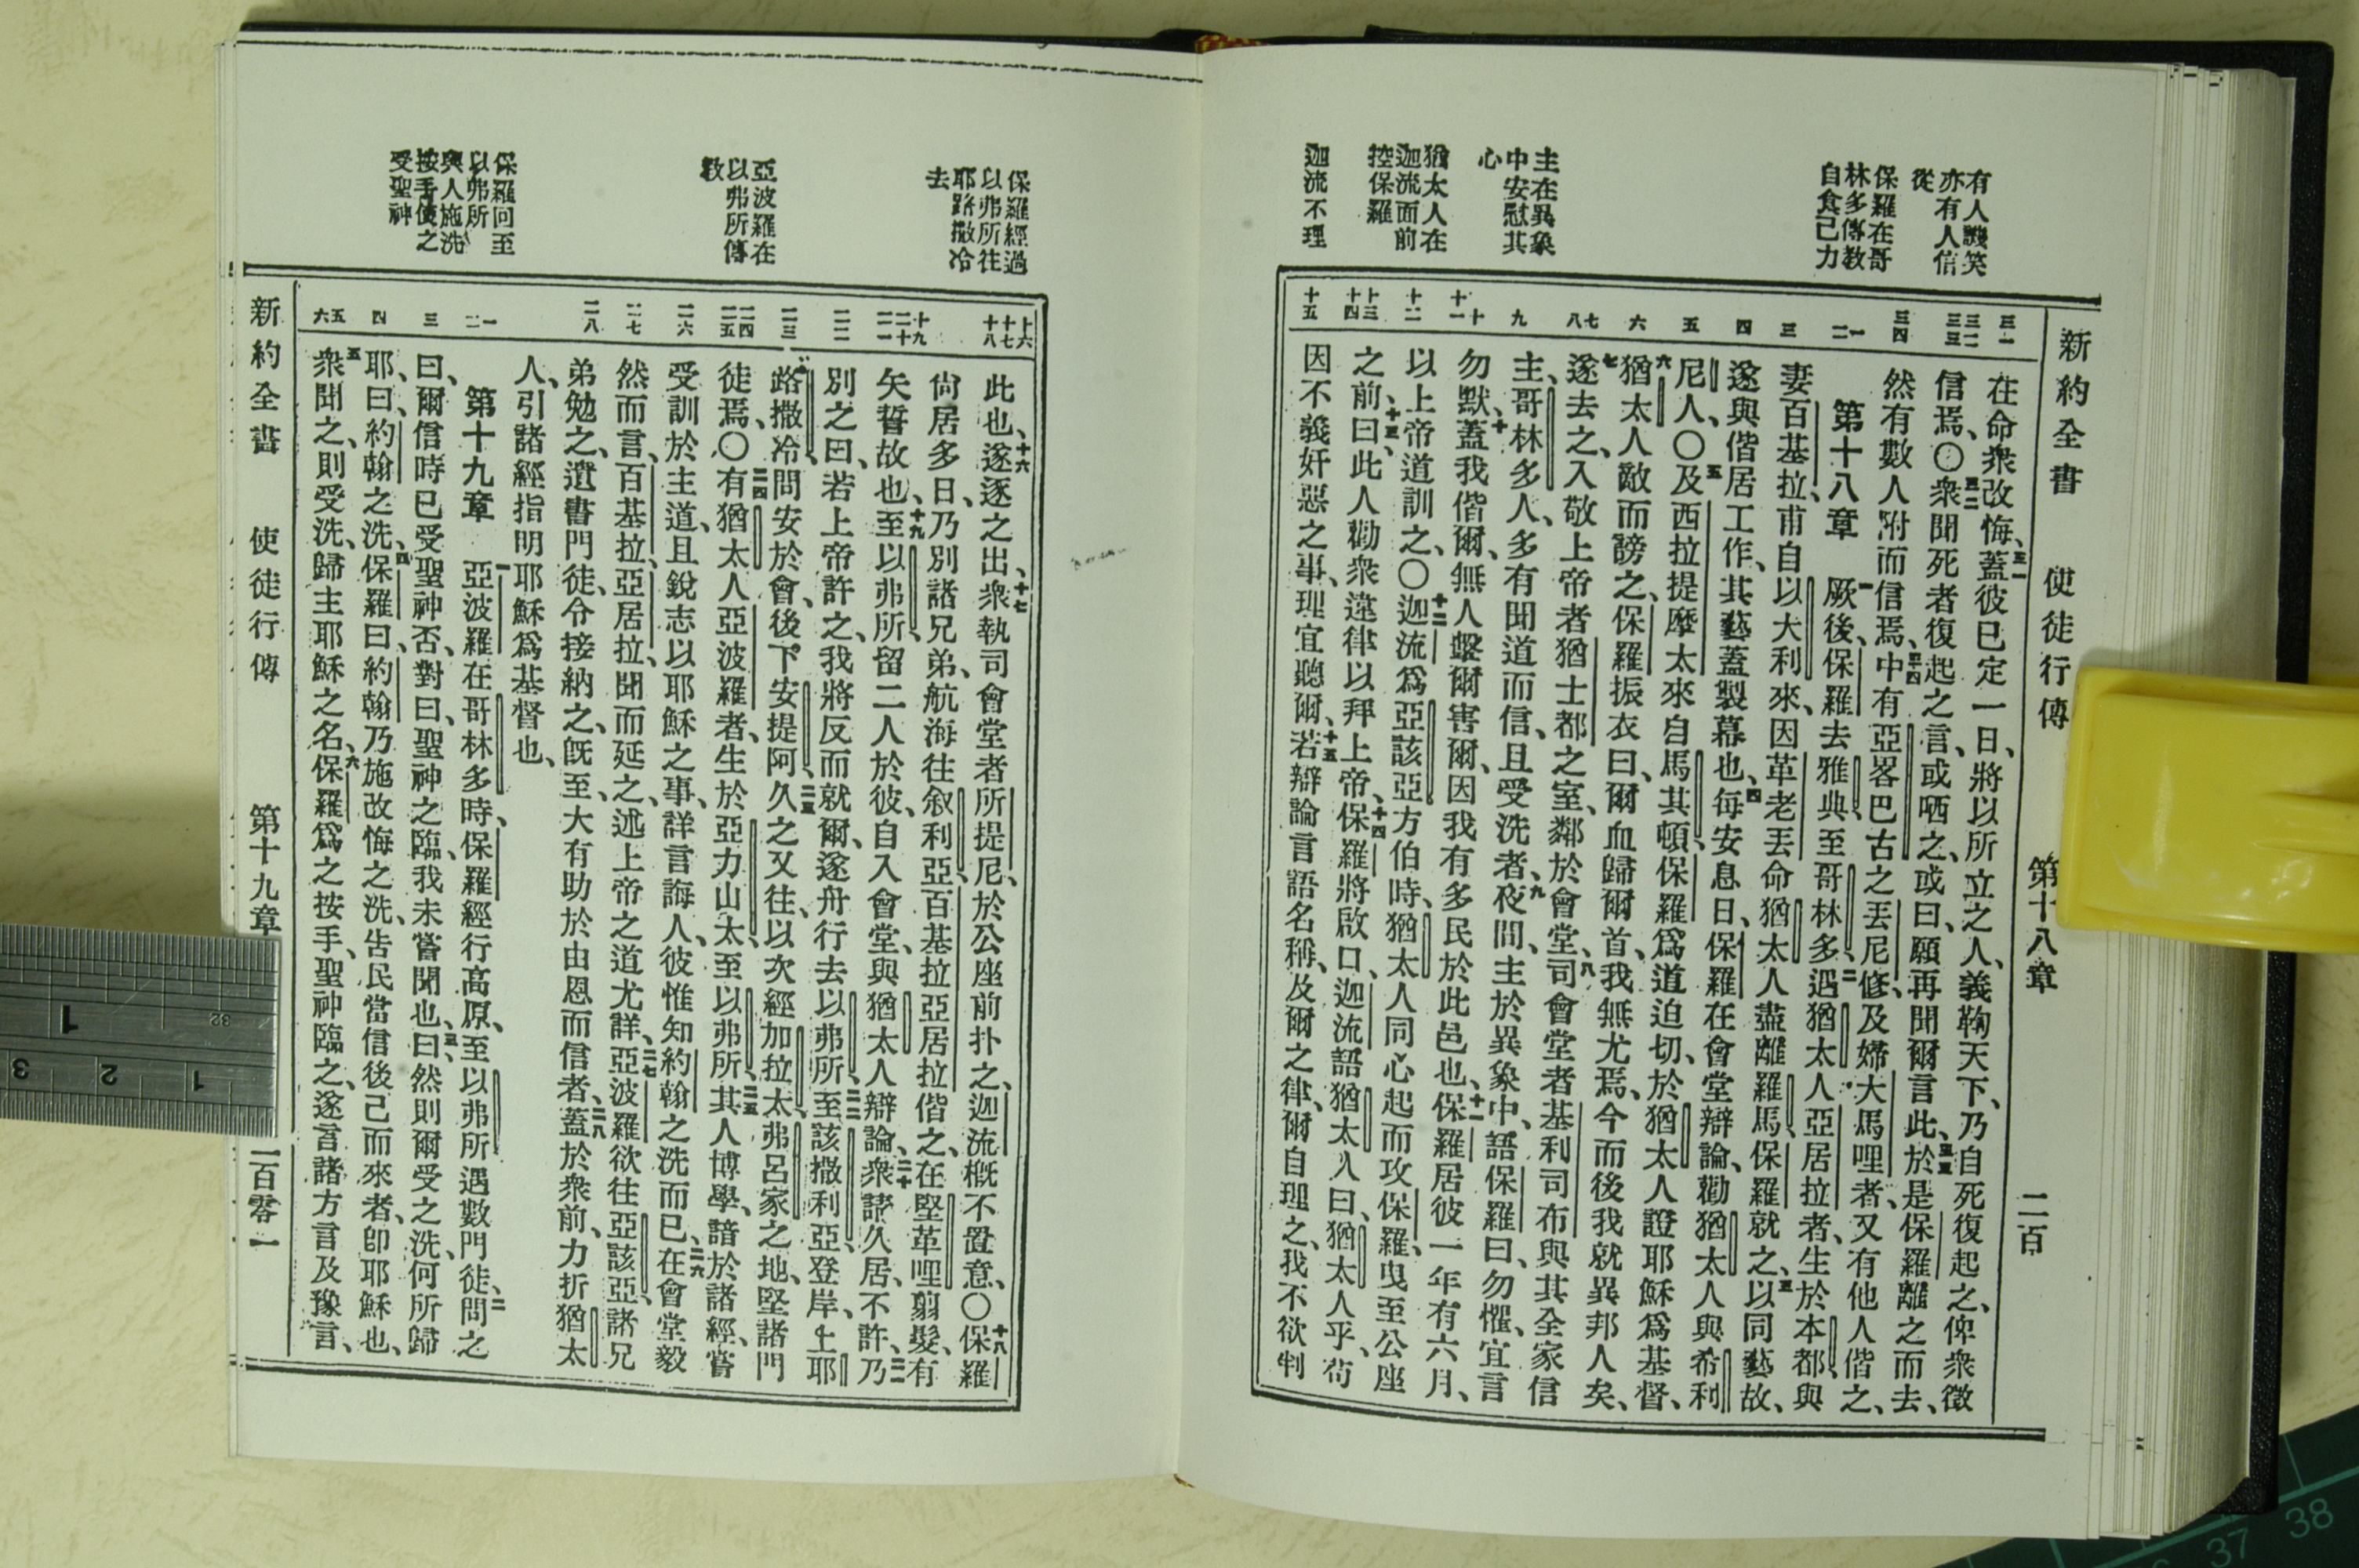 新約全書　使徒行傳　第十八章　二百
有人譏笑
亦有人信
從
保羅在哥
林多傳教
自食己力
主在異象
中安慰其
心
猶太人在
迦流面前
控保羅
迦流不理
三一
三二
三三
三四
一
二
三
四
五
六
七
八
九
十
十一
十二
十三
十四
十五
在命衆改悔、三一蓋彼已定一日、將以所立之人、義鞫天下、乃自死復起之、俾衆徵
信焉、〇三二衆聞死者復起之言、或哂之、或曰、願再聞爾言此、三三於是保羅離之而去、
然有數人附而信焉、三四中有亞畧巴古之丟尼修、及婦大馬哩者、又有他人偕之、
第十八章　一厥後、保羅去雅典至哥林多、二遇猶太人亞居拉者、生於本都、與
妻百基拉、甫自以大利來、因革老丟命猶太人盡離羅馬、保羅就之、三以同藝故、
遂與偕居工作、其藝蓋製幕也、四每安息日、保羅在會堂辯論、勸猶太人與希利
尼人、〇五及西拉提摩太來自馬其頓、保羅爲道迫切、於猶太人證耶穌爲基督、
六猶太人敵而謗之、保羅振衣曰、爾血歸爾首、我無尤焉、今而後我就異邦人矣、
七遂去之、入敬上帝者猶士都之室、鄰於會堂、八司會堂者基利司布與其全家信
主、哥林多人、多有聞道而信、且受洗者、九夜間、主於異象中、語保羅曰、勿懼、宜言
勿默、十蓋我偕爾、無人擊爾害爾、因我有多民於此邑也、十一保羅居彼一年有六月、
以上帝道訓之、〇十二迦流爲亞該亞方伯時、猶太人同心起而攻保羅、曳至公座
之前、十三曰、此人勸衆違律以拜上帝、十四保羅將啟口、迦流語猶太人曰、猶太人乎、苟
因不義奸惡之事、理宜聽爾、十五若辯論言語名稱、及爾之律、爾自理之、我不欲判
保羅經過
以弗所往
耶路撒冷
去
亞波羅在
以弗所傳
敎
保羅回至
以弗所
與人施洗
按手使之
受聖神
十六
十七
十八
十九
二十
二一
二二
二三
二四
二五
二六
二七
二八
一
二
三
四
五
六
此也、十六遂逐之出、十七衆執司會堂者所提尼、於公座前扑之、迦流槪不置意、〇十八保羅
尙居多日、乃別諸兄弟、航海往叙利亞、百基拉亞居拉偕之、在堅革哩翦髮、有
矢誓故也、十九至以弗所、留二人於彼、自入會堂、與猶太人辯論、二十衆請久居、不許、二一乃
別之曰、若上帝許之、我將反而就爾、遂舟行去以弗所、二二至該撒利亞登岸、上耶
路撒冷問安於會、後下安提阿、二三久之又往、以次經加拉太、弗呂家之地、堅諸門
徒焉、〇二四有猶太人亞波羅者、生於亞力山太、至以弗所、二五其人博學、諳於諸經、嘗
受訓於主道、且銳志以耶穌之事、詳言誨人、彼惟知約翰之洗而已、二六在會堂毅
然而言、百基拉、亞居拉、聞而延之、述上帝之道尤詳、二七亞波羅欲往亞該亞、諸兄
弟勉之、遺書門徒、令接納之、旣至、大有助於由恩而信者、二八蓋於衆前、力折猶太
人、引諸經指明耶穌爲基督也、
第十九章　一亞波羅在哥林多時、保羅經行高原、至以弗所、遇數門徒、二問之
曰、爾信時已受聖神否、對曰、聖神之臨、我未嘗聞也、三曰、然則爾受之洗、何所歸
耶、曰、約翰之洗、四保羅曰、約翰乃施改悔之洗、告民當信後己而來者、卽耶穌也、
五衆聞之、則受洗、歸主耶穌之名、六保羅爲之按手、聖神臨之、遂言諸方言及豫言、
新約全書　使徒行傳　第十九章　二百零一
1
32
3
2
1
37
38